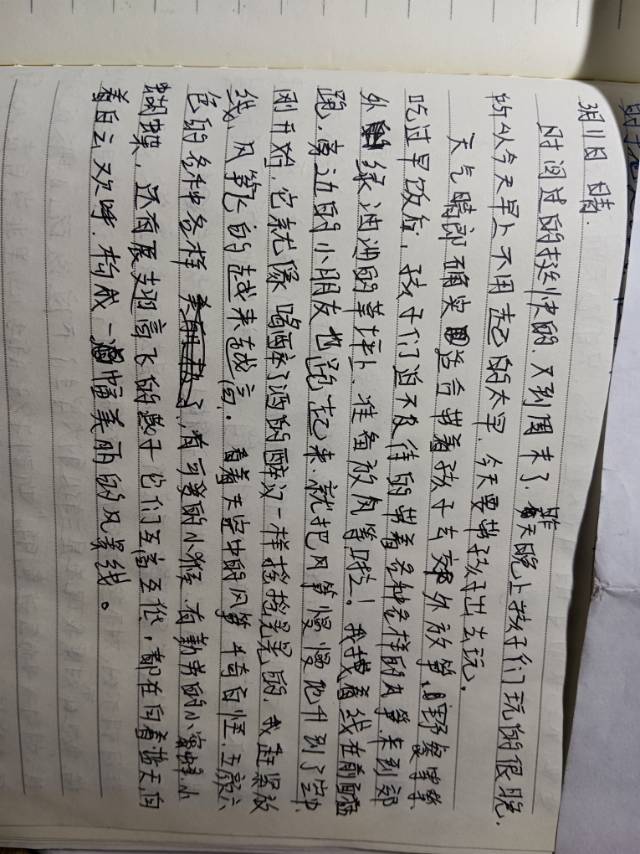 3月11日 晴.
时间过的挺快的.又到周末了.昨天晚上孩子们玩的很晚.
所以今天早上不用起的太早.今天要带孩子出去玩.
天气晴朗 确实适合带着孩子去郊外放筝,野餐等等
吃过早饭后,孩子们迫不及待的带着各种各样的风筝来到郊
外 绿油油的草坪上.准备放风筝啦!我拽着线在前面
跑,旁边的小朋友也跑起来.就把风筝慢慢地升到了空中
刚开始,它就像喝醉了酒的醉汉一样摇摇晃晃的.我赶紧放
线,风筝飞的越来越高。看着天空中的风筝千奇百怪.五颜六
色的各种各样 有可爱的小猴.有勤劳的小蜜蜂.小
蝴蝶.还有展翅高飞的燕子它们互高互低,都在向着蓝天,向
着白云欢呼.构成一幅美丽的风景线。